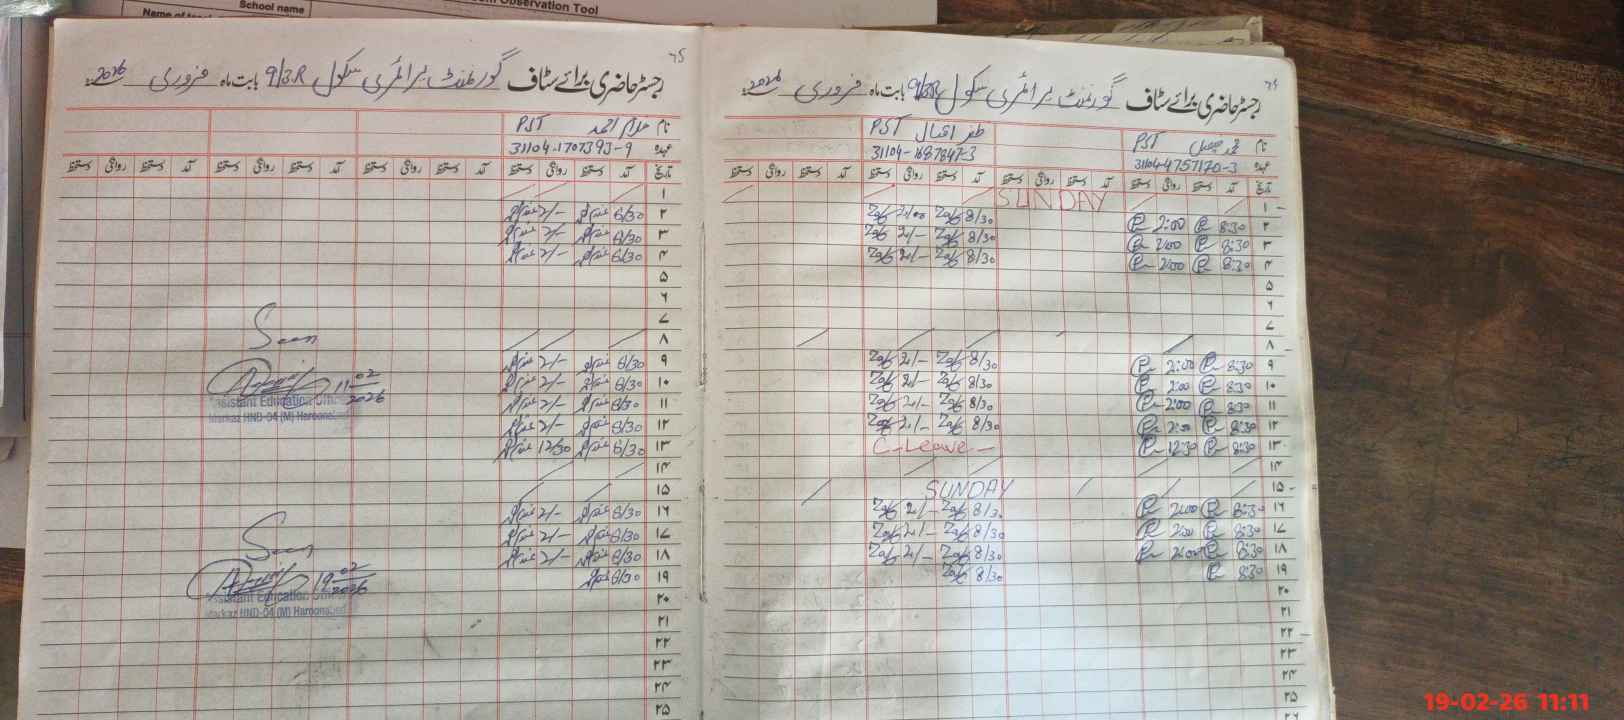 School name
Observation Tool
رجسٹر حاضری برائے سٹاف گورنمنٹ پرائمری سکول 9/3R بابت ماہ فروری 2026ء
نام PST
عہدہ 31104-4757170-3
نام ظفر اقبال PST
عہدہ 31104-1687847-3
تاریخ آمد دستخط روانگی دستخط آمد دستخط روانگی دستخط آمد دستخط روانگی دستخط
۱ SUNDAY
۲ 8:30 2:00 8/30 2/00
۳ 8:30 2:00 8/30 2/-
۴ 8:30 2:00 8/30 2/-
۵
۶
۷
۸
۹ 8:30 2:00 8/30 2/-
۱۰ 8:30 2:00 8/30 2/-
۱۱ 8:30 2:00 8/30 2/-
۱۲ 8:30 2:00 8/30 2/-
۱۳ 8:30 12:30 C-Leave
۱۴
۱۵ SUNDAY
۱۶ 8:30 2:00 8/30 2/-
۱۷ 8:30 2:00 8/30 2/-
۱۸ 8:30 2:00 8/30 2/-
۱۹ 8:30 8/30
۲۰
۲۱
۲۲
۲۳
۲۴
۲۵
رجسٹر حاضری برائے سٹاف گورنمنٹ پرائمری سکول 9/3R بابت ماہ فروری 2026ء
نام احمد PST
عہدہ 31104-1707393-9
تاریخ آمد دستخط روانگی دستخط آمد دستخط روانگی دستخط آمد دستخط روانگی دستخط آمد دستخط روانگی دستخط
۱
۲ 8/30 2/-
۳ 8/30 2/-
۴ 8/30 2/-
۵
۶
۷
۸
۹ 8/30 2/-
۱۰ 8/30 2/-
۱۱ 8/30 2/-
۱۲ 8/30 2/-
۱۳ 8/30 12/30
۱۴
۱۵
۱۶ 8/30 2/-
۱۷ 8/30 2/-
۱۸ 8/30 2/-
۱۹ 8/30
۲۰
۲۱
۲۲
۲۳
۲۴
۲۵
Seen
11 02 2026
Assistant Education Officer
Markaz HND-04 (M) Haroonabad
Seen
19 02 2026
Assistant Education Officer
Markaz HND-04 (M) Haroonabad
19-02-26 11:11